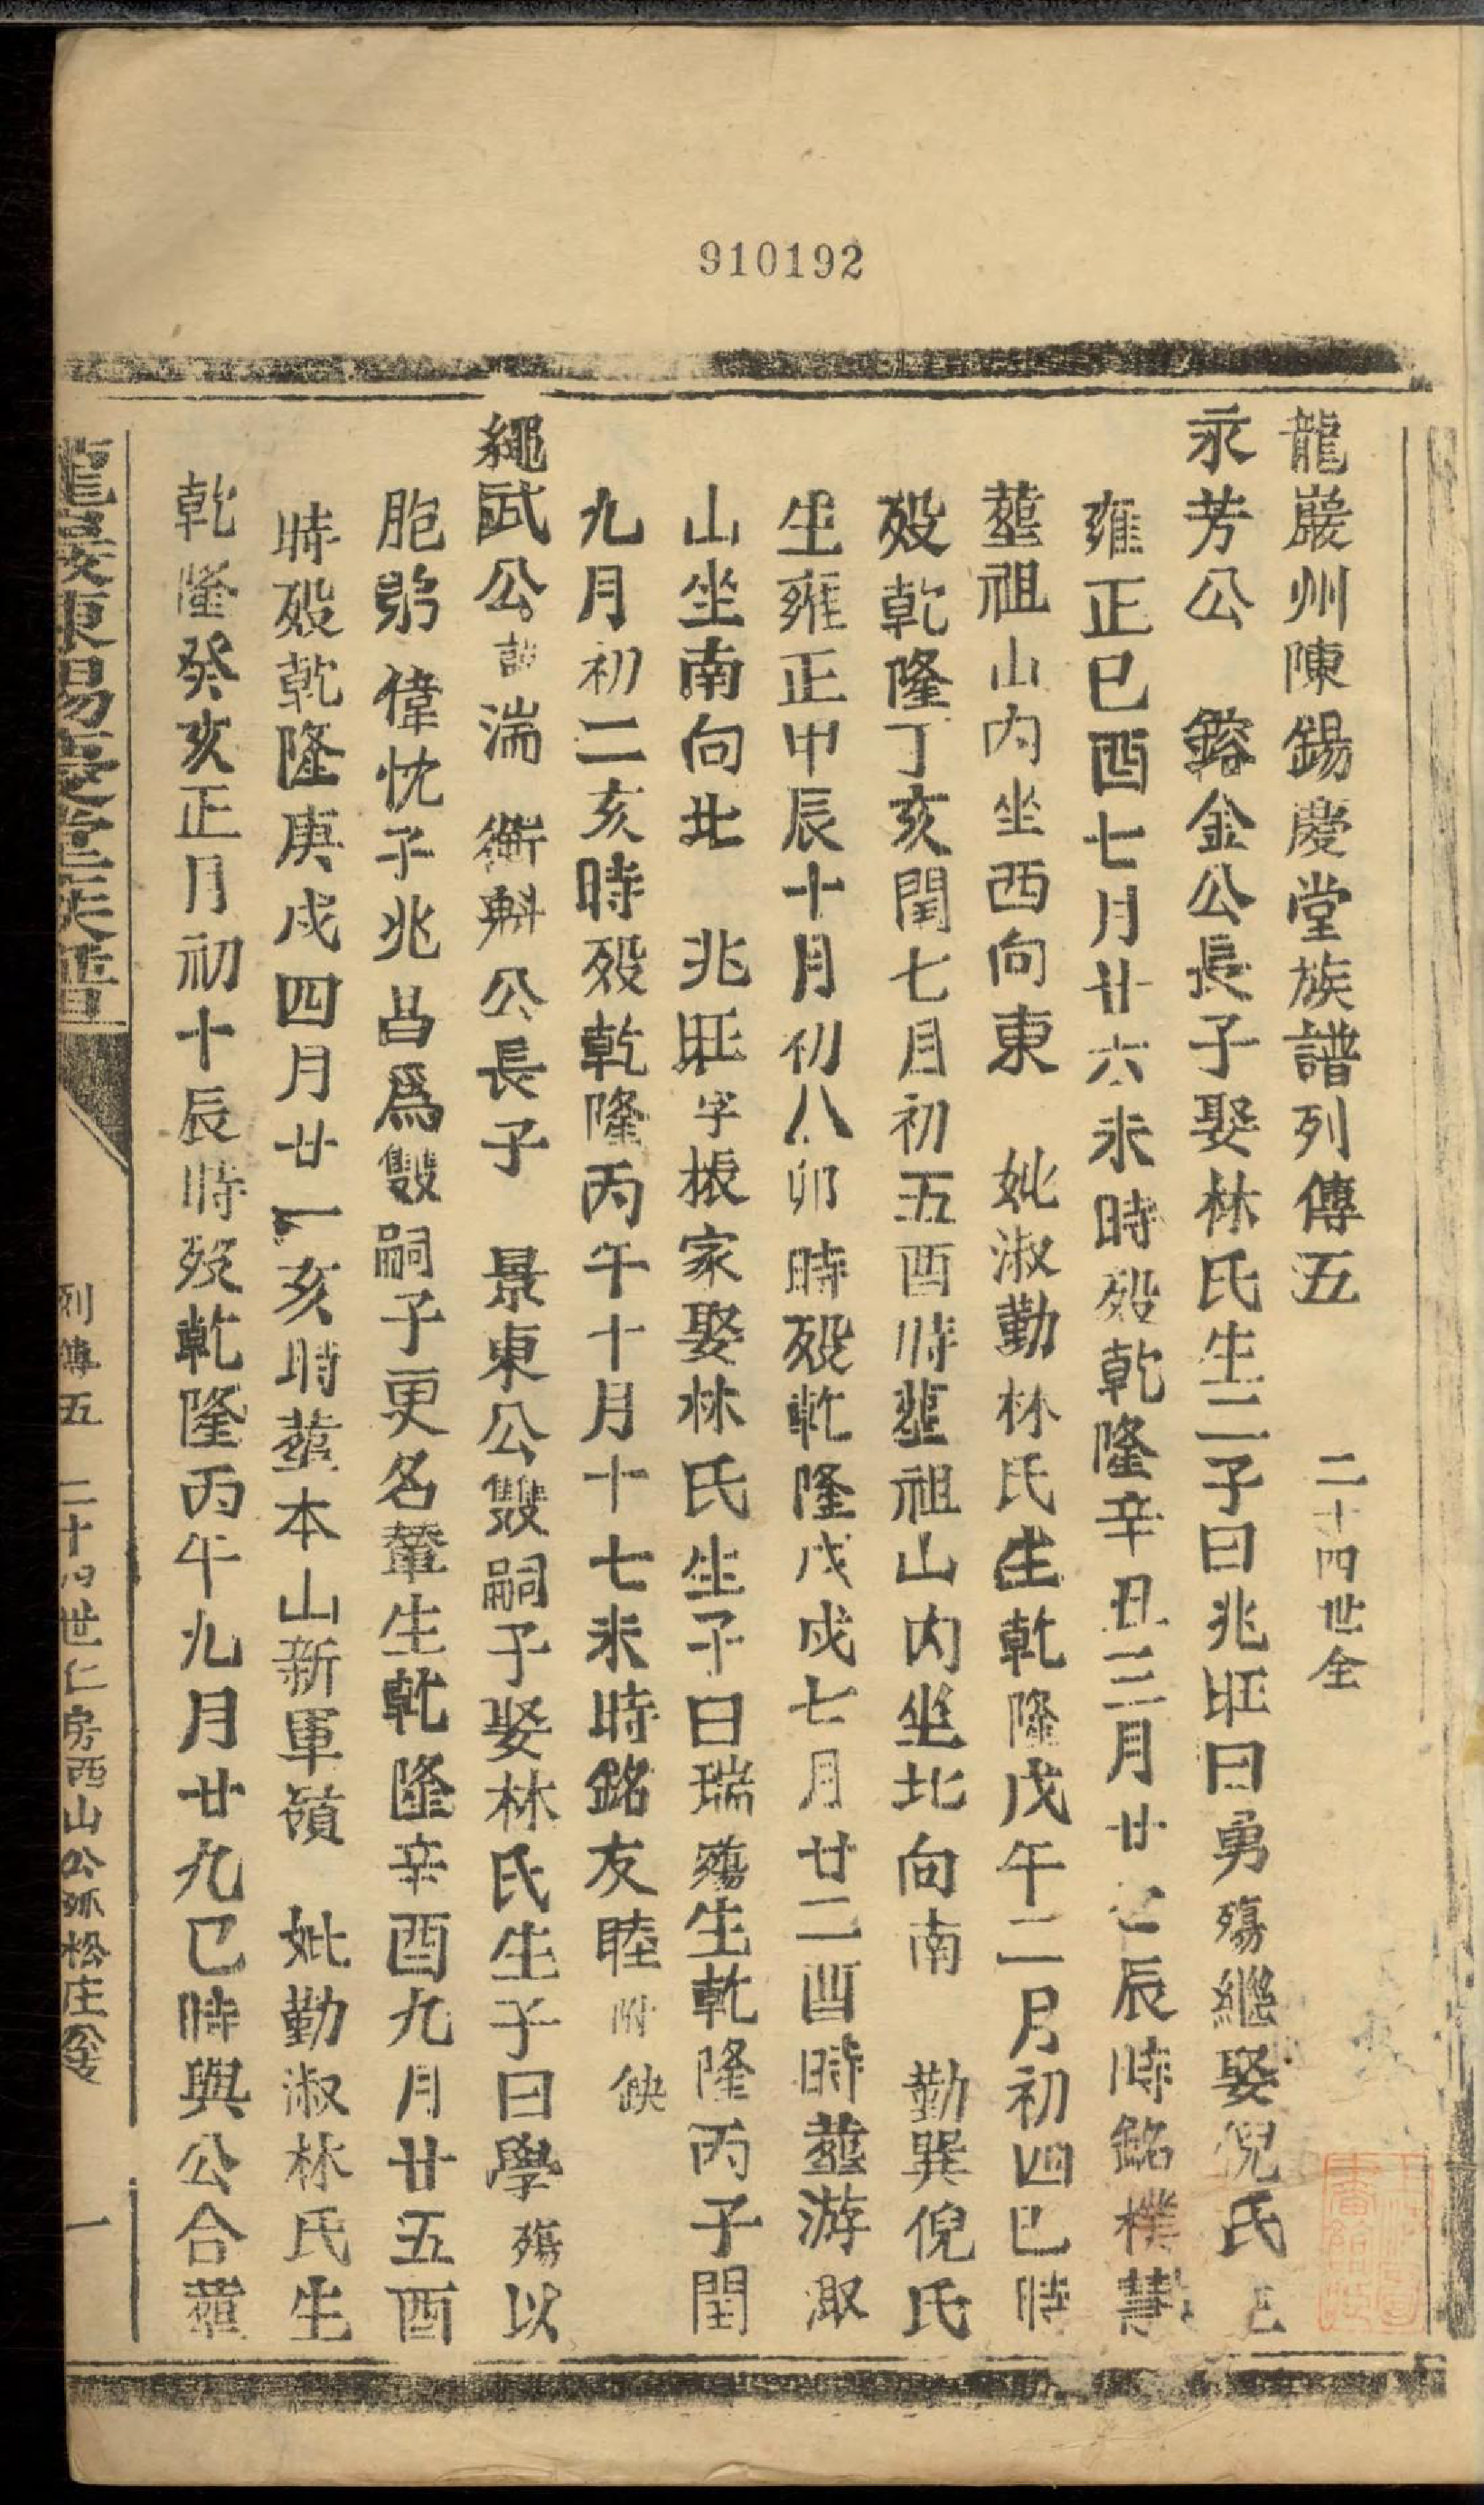 910192
龍巖州陳錫慶堂族譜列傳五 二十四世全
永芳公 鎔金公長子娶林氏生二子曰兆旺曰勇殤繼娶倪氏
雍正己酉七月廿六未時殁乾隆辛丑三月廿七辰時銘樸慧
塟祖山內坐西向東 妣淑勤林氏生乾隆戊午二月初四巳時
殁乾隆丁亥閏七月初五酉時塟祖山內坐北向南 勤巽倪氏
生雍正甲辰十月初八卯時殁乾隆戊戌七月廿二酉時塟游溆
山坐南向北 兆旺字振家娶林氏生子曰瑞殤生乾隆丙子閏
九月初二亥時殁乾隆丙午十月十七未時銘友睦附缺
繩武公諱湍 衡斞公長子 景東公雙嗣子娶林氏生子曰學殤以
胞弟偉忱子兆昌爲雙嗣子更名輦生乾隆辛酉九月廿五酉
時殁乾隆庚戌四月廿一亥時塟本山新軍嶺 妣勤淑林氏生
乾隆癸亥正月初十辰時殁乾隆丙午九月廿九巳時與公合塟
列傳五 二十四世仁房西山公派松庄 一